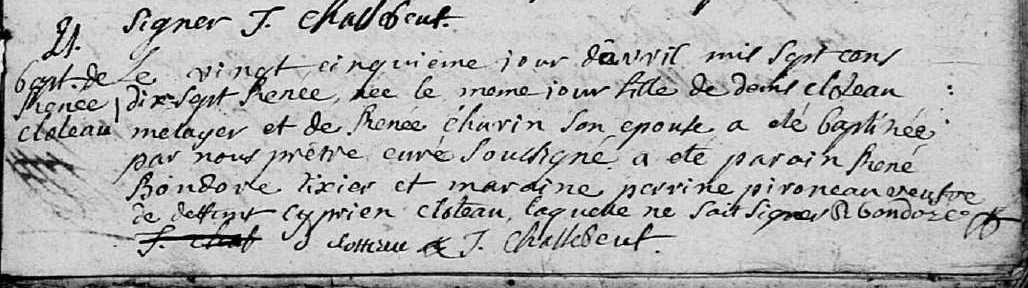 signer J. Challebeut.
21.
bapt. de
Renée
cloteau
Le vingt cinquieme jour d'avril mil sept cens
dix-sept Renée, née le meme jour fille de denis cloteau
metayer et de Renée churin son epouse a eté baptisée
par nous prêtre curé soussigné a eté parain René
Bondore tixier et maraine perrine pironeau veufve
de deffunt cyprien cloteau, laquelle ne sait signer R bondore
J. Chal J. Challebeut.